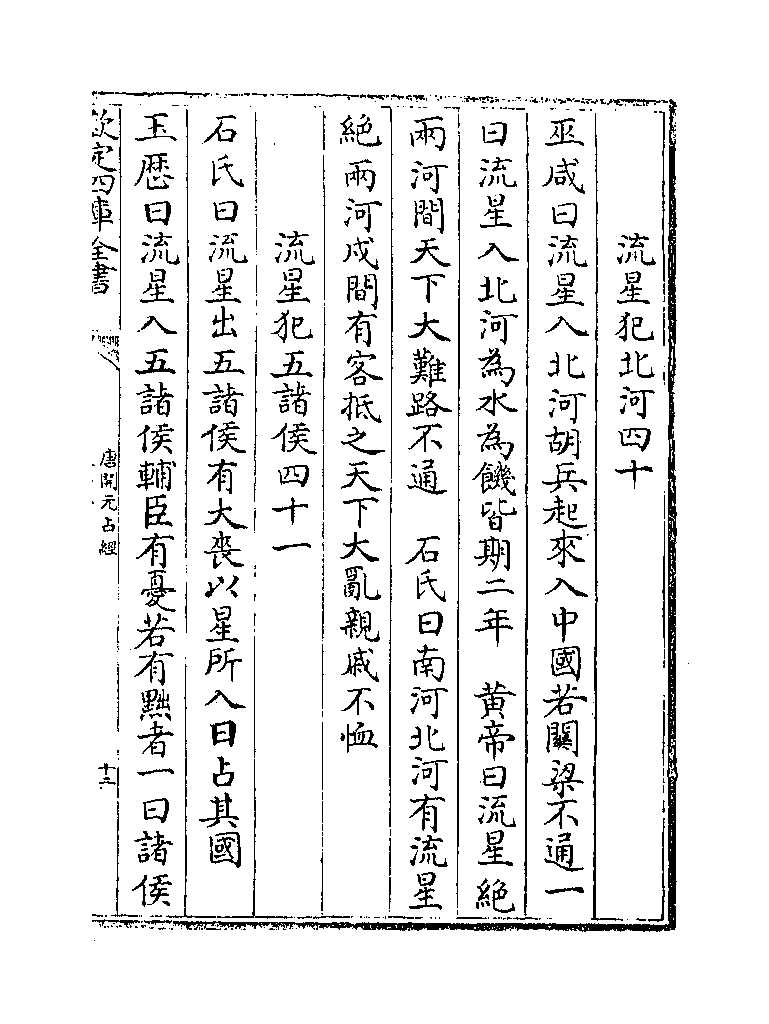 流星犯北河四十
巫咸曰流星入北河胡兵起來入中國若關梁不通一
曰流星入北河為水為饑皆期二年　黄帝曰流星絶
兩河間天下大難路不通　石氏曰南河北河有流星
絶兩河戍間有客抵之天下大亂親戚不恤
流星犯五諸侯四十一
石氏曰流星出五諸侯有大喪以星所入日占其國
玉歴曰流星入五諸侯輔臣有憂若有黜者一曰諸侯
欽定四庫全書
唐開元占經
十二